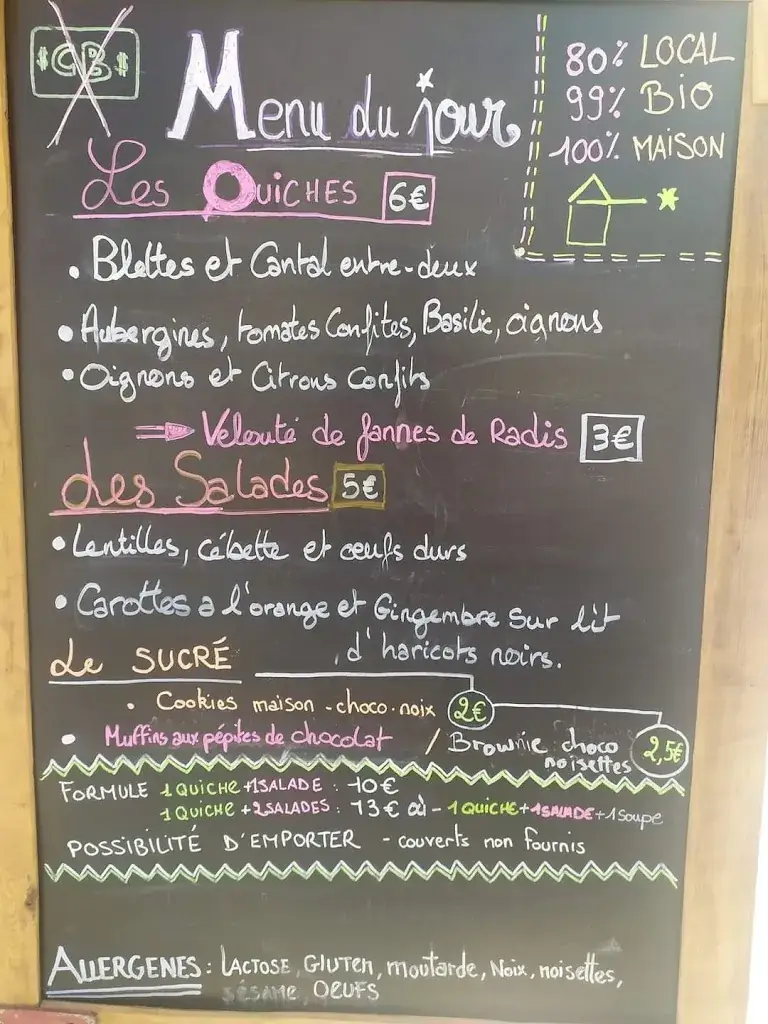 $ CB $
Menu du jour
80% LOCAL
99% BIO
100% MAISON
Les Quiches 6€
• Blettes et Cantal entre-deux
• Aubergines, tomates Confites, Basilic, oignons
• Oignons et Citrons Confits
Velouté de fannes de Radis 3€
Les Salades 5€
• Lentilles, cébette et œufs durs
• Carottes a l'orange et Gingembre Sur lit
d'haricots noirs.
Le SUCRÉ
• Cookies maison - choco-noix 2€
• Muffins aux pépites de chocolat / Brownie choco
noisettes 2,5€
FORMULE 1 QUICHE + 1 SALADE : 10€
1 QUICHE + 2 SALADES : 13€ où - 1 QUICHE + 1 SALADE + 1 Soupe
POSSIBILITÉ D'EMPORTER - couverts non fournis
ALLERGENES : LACTOSE, GLUTEN, moutarde, Noix, noisettes,
sésame, OEUFS